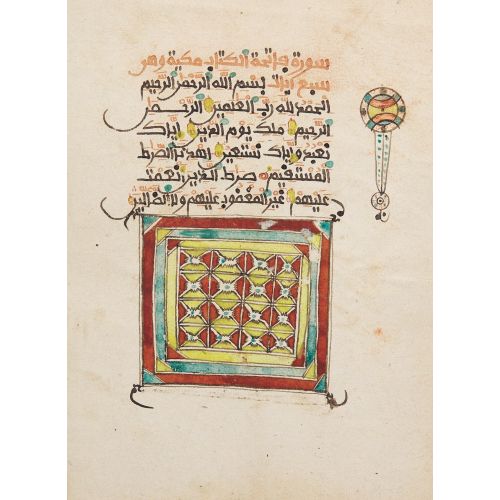 سورة فاتحة الكتاب مكية وهي
سبع ءايات بسم الله الرحمن الرحيم
الحمد لله رب العلمين الرحمن
الرحيم ملك يوم الدين إياك
نعبد وإياك نستعين اهدنا الصرط
المستقيم صرط الذين أنعمت
عليهم غير المغضوب عليهم ولا الضالين